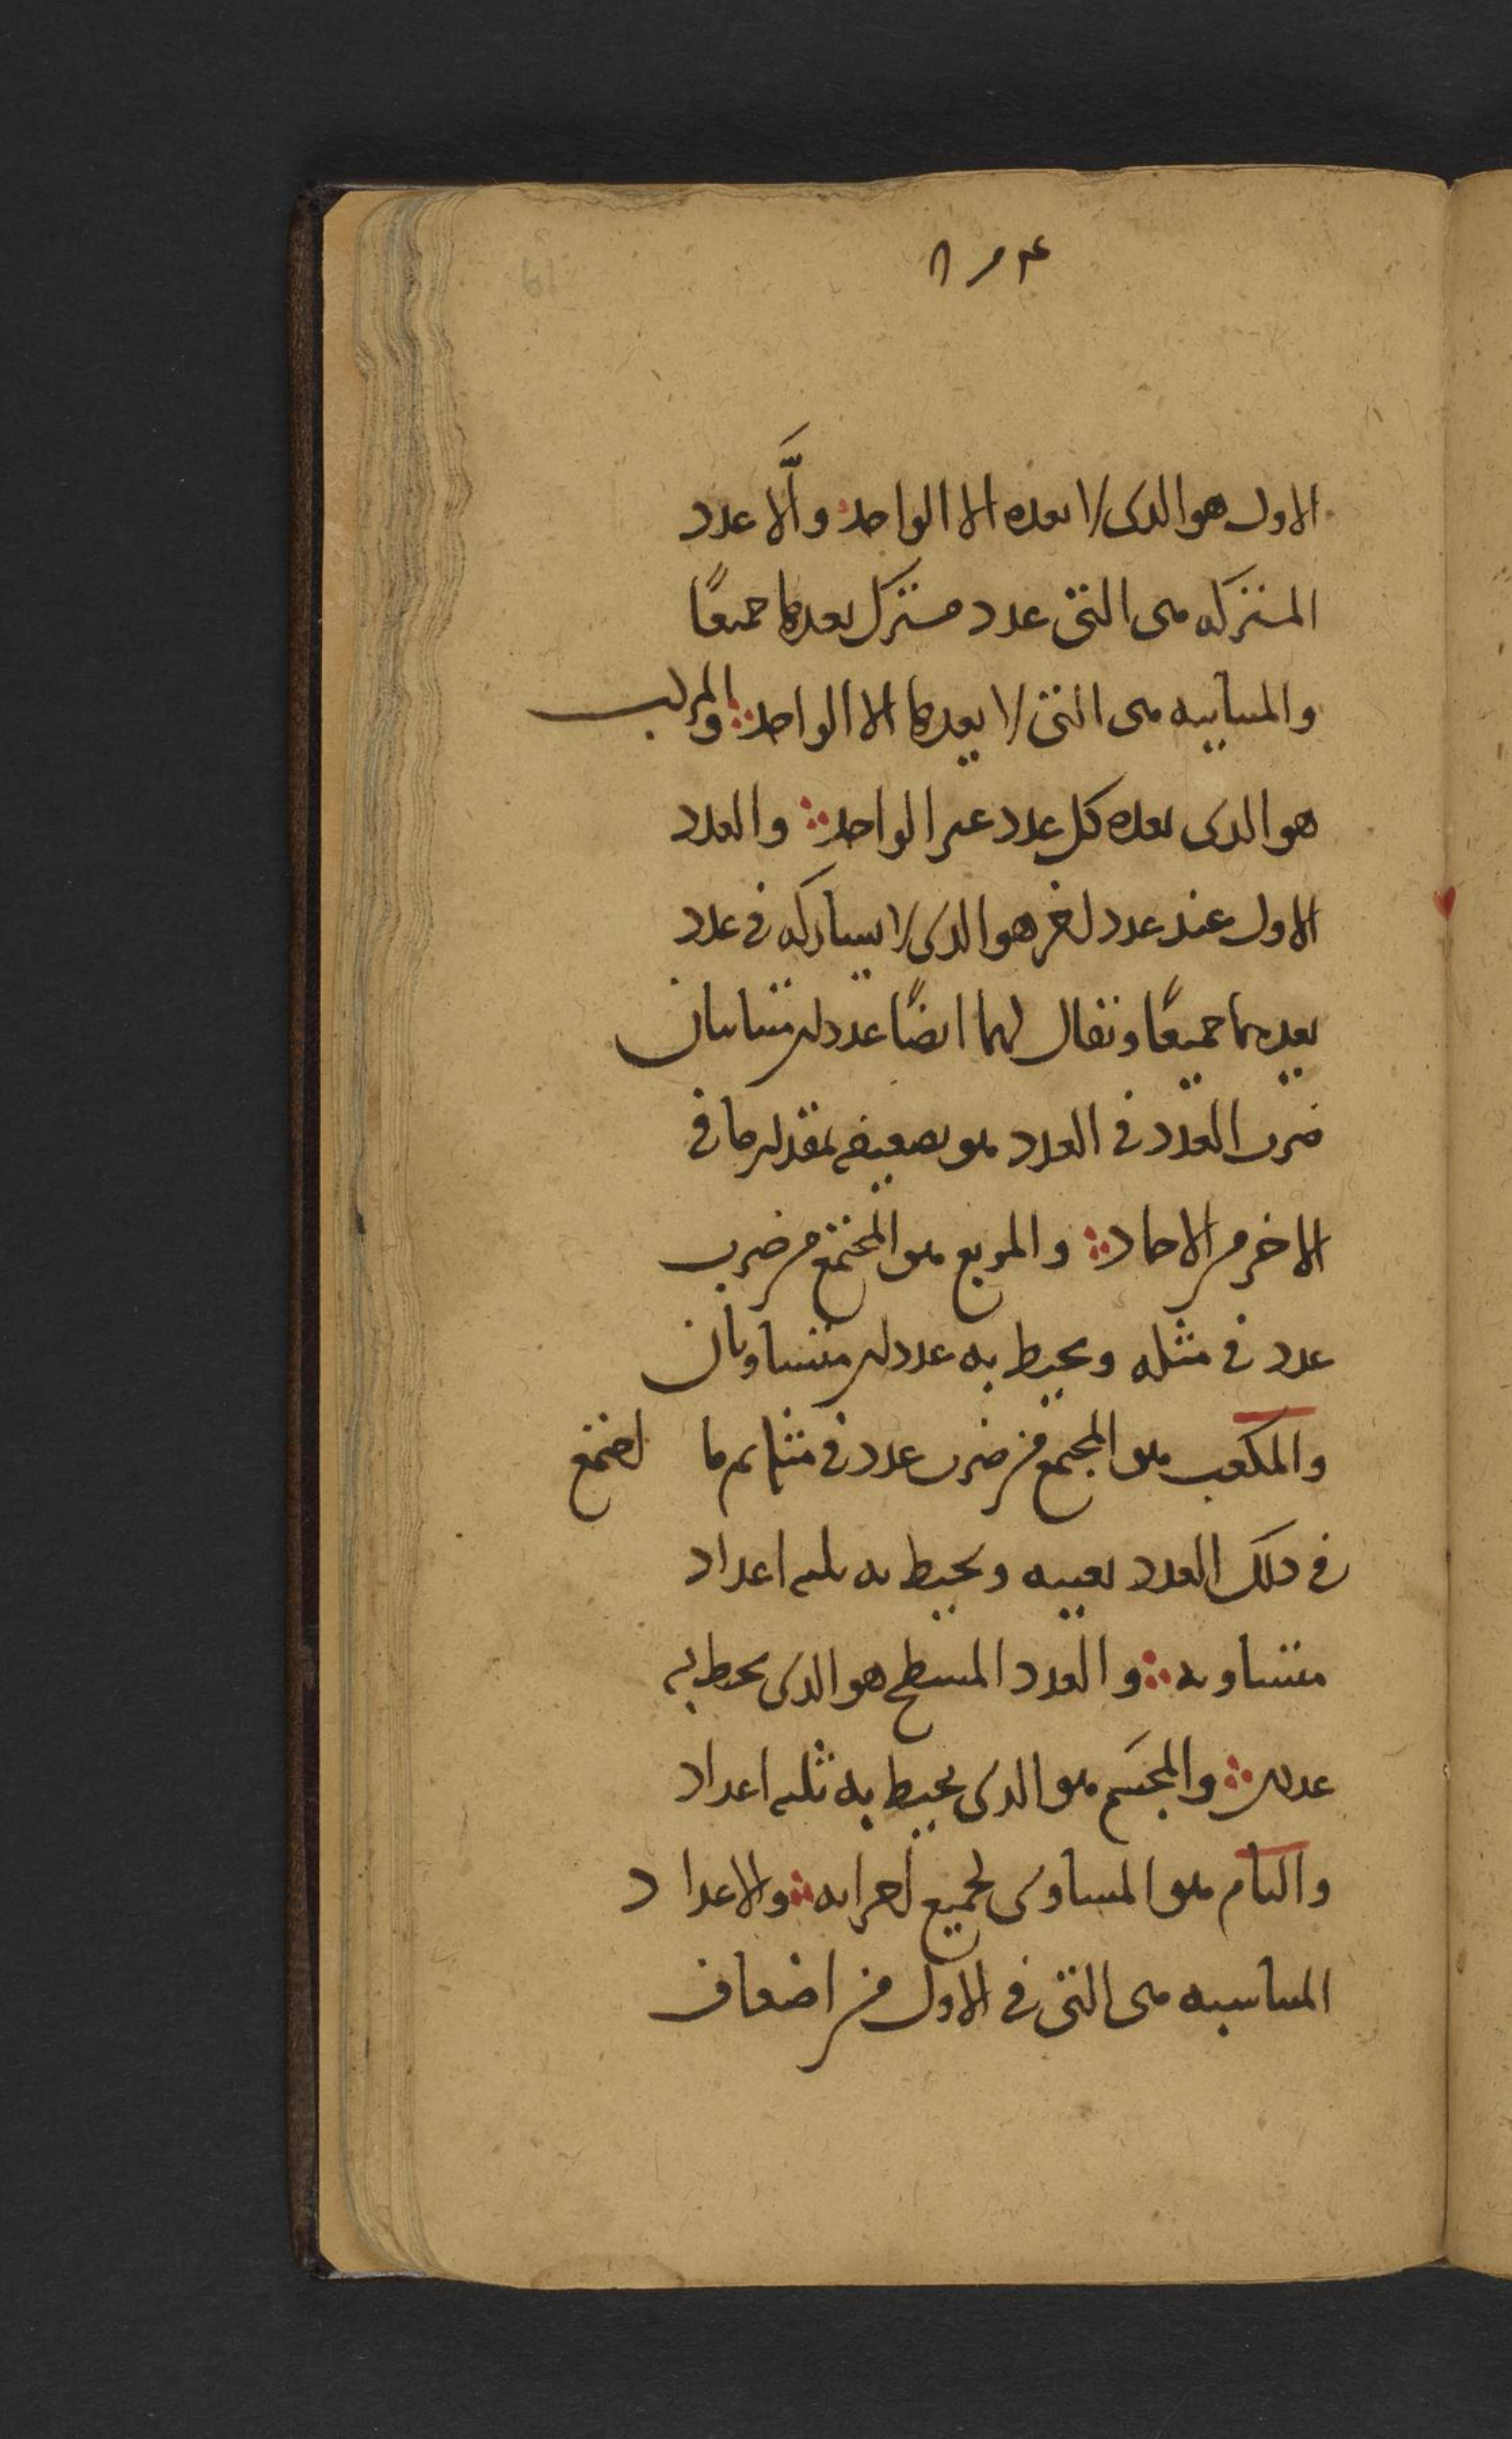 الاول هو الذى لا يعده الا الواحد والا عدد
المشتركه هى التى عدد مشترك يعدها جميعًا
والمتباينه هى التى لا يعدها الا الواحد والمركب
هو الذى يعده كل عدد غير الواحد والعدد
الاول عند عدد اخر هو الذى لا يشاركه فى عدد
يعدهما جميعًا ويقال لهما ايضًا عددان متباينان
ضرب العدد فى العدد هو تضعيفه بمقدار ما فى
الاخر من الاحاد والمربع هو المجتمع من ضرب
عدد فى مثله ويحيط به عددان متساويان
والمكعب هو المجتمع من ضرب عدد فى مثله ثم ما اجتمع
فى ذلك العدد بعينه ويحيط به ثلثه اعداد
متساويه والعدد المسطح هو الذى يحيط به
عددان والمجسّم هو الذى يحيط به ثلثه اعداد
والتام هو المساوى لجميع اجزائه والاعداد
المتناسبه هى التى فى الاول من اضعاف